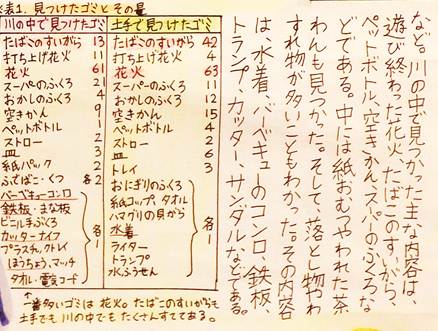 表1. 見つけたゴミとその量
川の中で見つけたゴミ 土手で見つけたゴミ
たばこのすいがら 13 たばこのすいがら 42
打ち上げ花火 11 打ち上げ花火 4
花火 61 花火 63
スーパーのふくろ 21 スーパーのふくろ 11
おかしのふくろ 4 おかしのふくろ 12
空きかん 9 空きかん 15
ペットボトル 1 ペットボトル 4
ストロー 2 ストロー 2
皿 3 皿 6
紙パック 2 トレイ 3
ふでばこ・くつ 各2 おにぎりのふくろ
バーベキューコンロ 紙コップ、タオル
鉄板・まな板 ハマグリの貝がら
ビニル手ぶくろ 水着
カッターナイフ 各1 ライター 各1
プラスチックトレイ トランプ
ほうちょう、マッチ 水ふうせん
タオル・電気コード
↑一番多いゴミは花火。たばこのすいがらも
土手でも川の中でもたくさんすててある。
など。川の中で見つかった主な内容は、
遊び終わった花火、たばこのすいがら、
ペットボトル、空きかん、スーパーのふくろな
どである。中には紙おむつやわれた茶
わんも見つかった。そして、落とし物やわ
すれ物が多いこともわかった。その内容
は、水着、バーベキューのコンロ、鉄板、
トランプ、カッター、サンダルなどである。